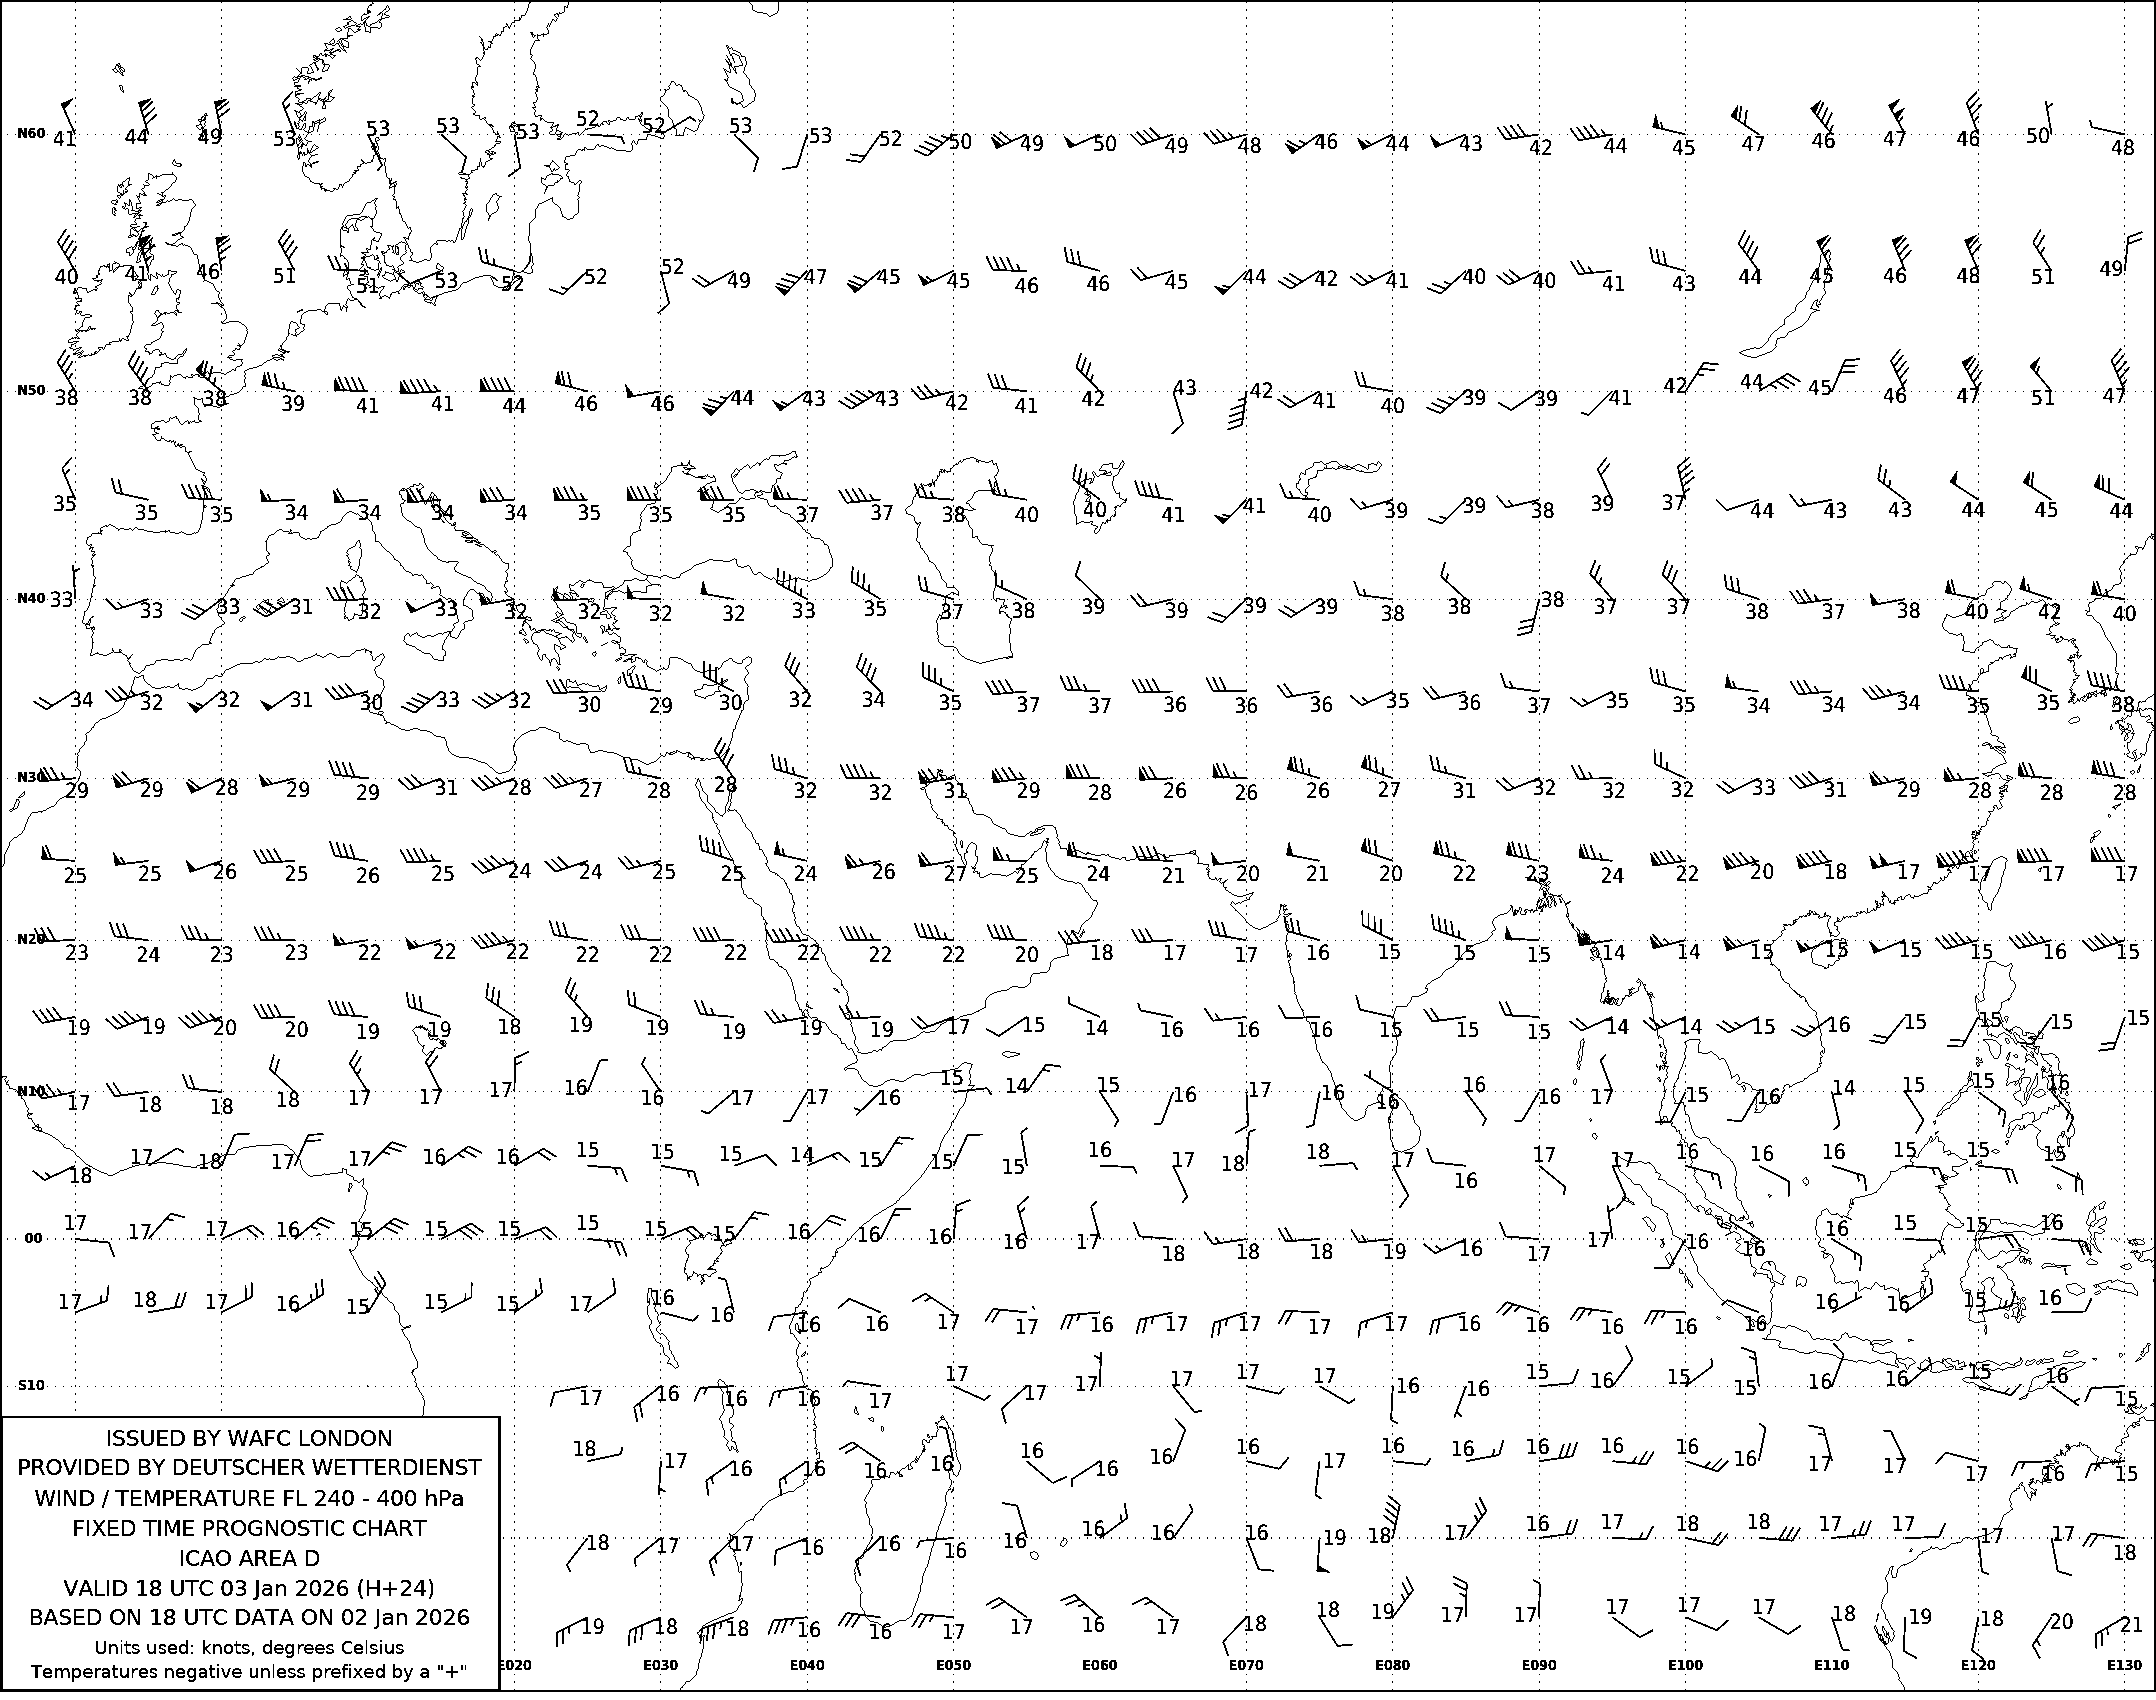 41 44 49 53 53 53 53 52 52 53 53 52 50 49 50 49 48 46 44 43 42 44 45 47 46 47 46 50 48
N60
40 41 46 51 51 53 52 52 52 49 47 45 45 46 46 45 44 42 41 40 40 41 43 44 45 46 48 51 49
N50
38 38 38 39 41 41 44 46 46 44 43 43 42 41 42 43 42 41 40 39 39 41 42 44 45 46 47 51 47
35 35 35 34 34 34 34 35 35 35 37 37 38 40 40 41 41 40 39 39 38 39 37 44 43 43 44 45 44
N40
33 33 33 31 32 33 32 32 32 32 33 35 37 38 39 39 39 39 38 38 38 37 37 38 37 38 40 42 40
34 32 32 31 30 33 32 30 29 30 32 34 35 37 37 36 36 36 35 36 37 35 35 34 34 34 35 35 38
N30
29 29 28 29 29 31 28 27 28 28 32 32 31 29 28 26 26 26 27 31 32 32 32 33 31 29 28 28 28
25 25 26 25 26 25 24 24 25 25 24 26 27 25 24 21 20 21 20 22 23 24 22 20 18 17 17 17 17
N20
23 24 23 23 22 22 22 22 22 22 22 22 22 20 18 17 17 16 15 15 15 14 14 15 15 15 15 16 15
19 19 20 20 19 19 18 19 19 19 19 19 17 15 14 16 16 16 15 15 15 14 14 15 16 15 15 15 15
N10
17 18 18 18 17 17 17 16 16 17 17 16 15 14 15 16 17 16 16 16 16 17 15 16 14 15 15 16
18 17 18 17 17 16 16 15 15 15 14 15 15 15 16 17 18 18 17 16 17 17 16 16 16 15 15 15
00
17 17 17 16 15 15 15 15 15 15 16 16 16 16 17 18 18 18 19 16 17 17 16 16 16 15 15 16
17 18 17 16 15 15 15 17 16 16 16 16 17 17 16 17 17 17 17 16 16 16 16 16 16 16 15 16
S10
17 16 16 16 17 17 17 17 17 17 17 16 16 15 16 15 15 16 16 15 16 15
18 17 16 16 16 16 16 16 16 16 17 16 16 16 16 16 16 17 17 17 16 15
18 17 17 16 16 16 16 16 16 16 19 18 17 16 17 18 18 17 17 17 17 18
19 18 18 16 16 17 17 16 17 18 18 19 17 17 17 17 17 18 19 18 20 21
E020 E030 E040 E050 E060 E070 E080 E090 E100 E110 E120 E130
ISSUED BY WAFC LONDON
PROVIDED BY DEUTSCHER WETTERDIENST
WIND / TEMPERATURE FL 240 - 400 hPa
FIXED TIME PROGNOSTIC CHART
ICAO AREA D
VALID 18 UTC 03 Jan 2026 (H+24)
BASED ON 18 UTC DATA ON 02 Jan 2026
Units used: knots, degrees Celsius
Temperatures negative unless prefixed by a "+"